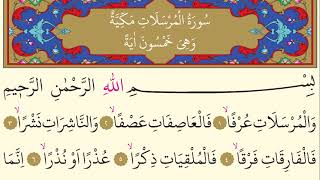 سُورَةُ الْمُرْسَلَاتِ مَكِّيَّةٌ
وَهِىَ خَمْسُونَ اٰيَةً
بِسْــــمِ اللّٰهِ الرَّحْمٰنِ الرَّحٖيمِ
وَالْمُرْسَلَاتِ عُرْفًاۙ ﴿١﴾ فَالْعَاصِفَاتِ عَصْفًاۙ ﴿٢﴾ وَالنَّاشِرَاتِ نَشْرًاۙ ﴿٣﴾
فَالْفَارِقَاتِ فَرْقًاۙ ﴿٤﴾ فَالْمُلْقِيَاتِ ذِكْرًاۙ ﴿٥﴾ عُذْرًا اَوْ نُذْرًاۙ ﴿٦﴾ اِنَّمَا